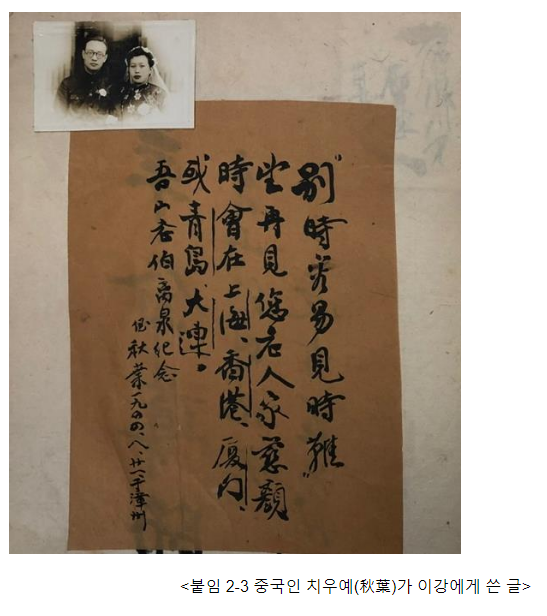 "別時容易見時難"
望再見您老人家慈顏
時會在上海、香港、厦门、
或青島、大連。
吾山老伯离泉纪念
侄秋葉一九四四、八、廿一、于漳州
<붙임 2-3 중국인 치우예(秋葉)가 이강에게 쓴 글>